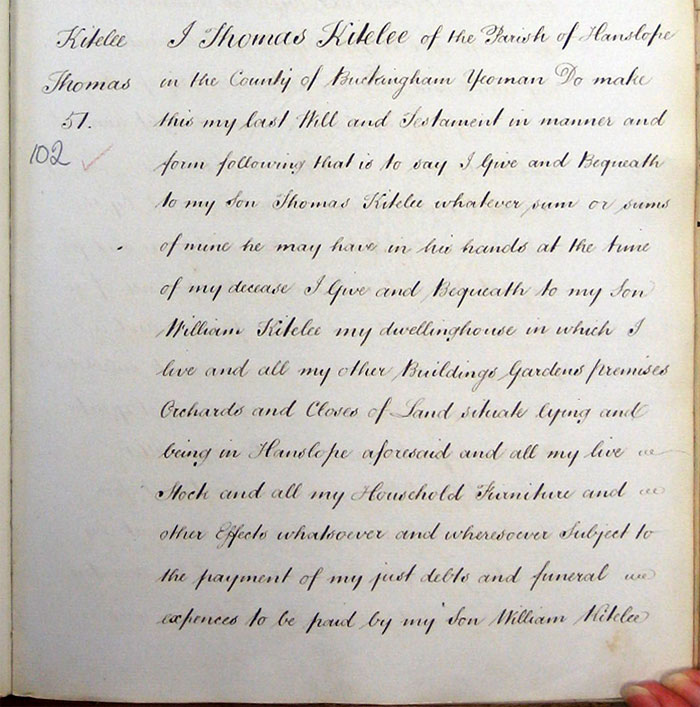 Kitelee
Thomas
51.
102
I Thomas Kitelee of the Parish of Hanslope
in the County of Buckingham Yeoman Do make
this my last Will and Testament in manner and
form following that is to say I Give and Bequeath
to my Son Thomas Kitelee whatever sum or sums
of mine he may have in his hands at the time
of my decease I Give and Bequeath to my Son
William Kitelee my dwellinghouse in which I
live and all my other Buildings Gardens premises
Orchards and Closes of Land situate lying and
being in Hanslope aforesaid and all my live
Stock and all my Household Furniture and
other Effects whatsoever and wheresoever Subject to
the payment of my just debts and funeral
expences to be paid by my Son William Kitelee